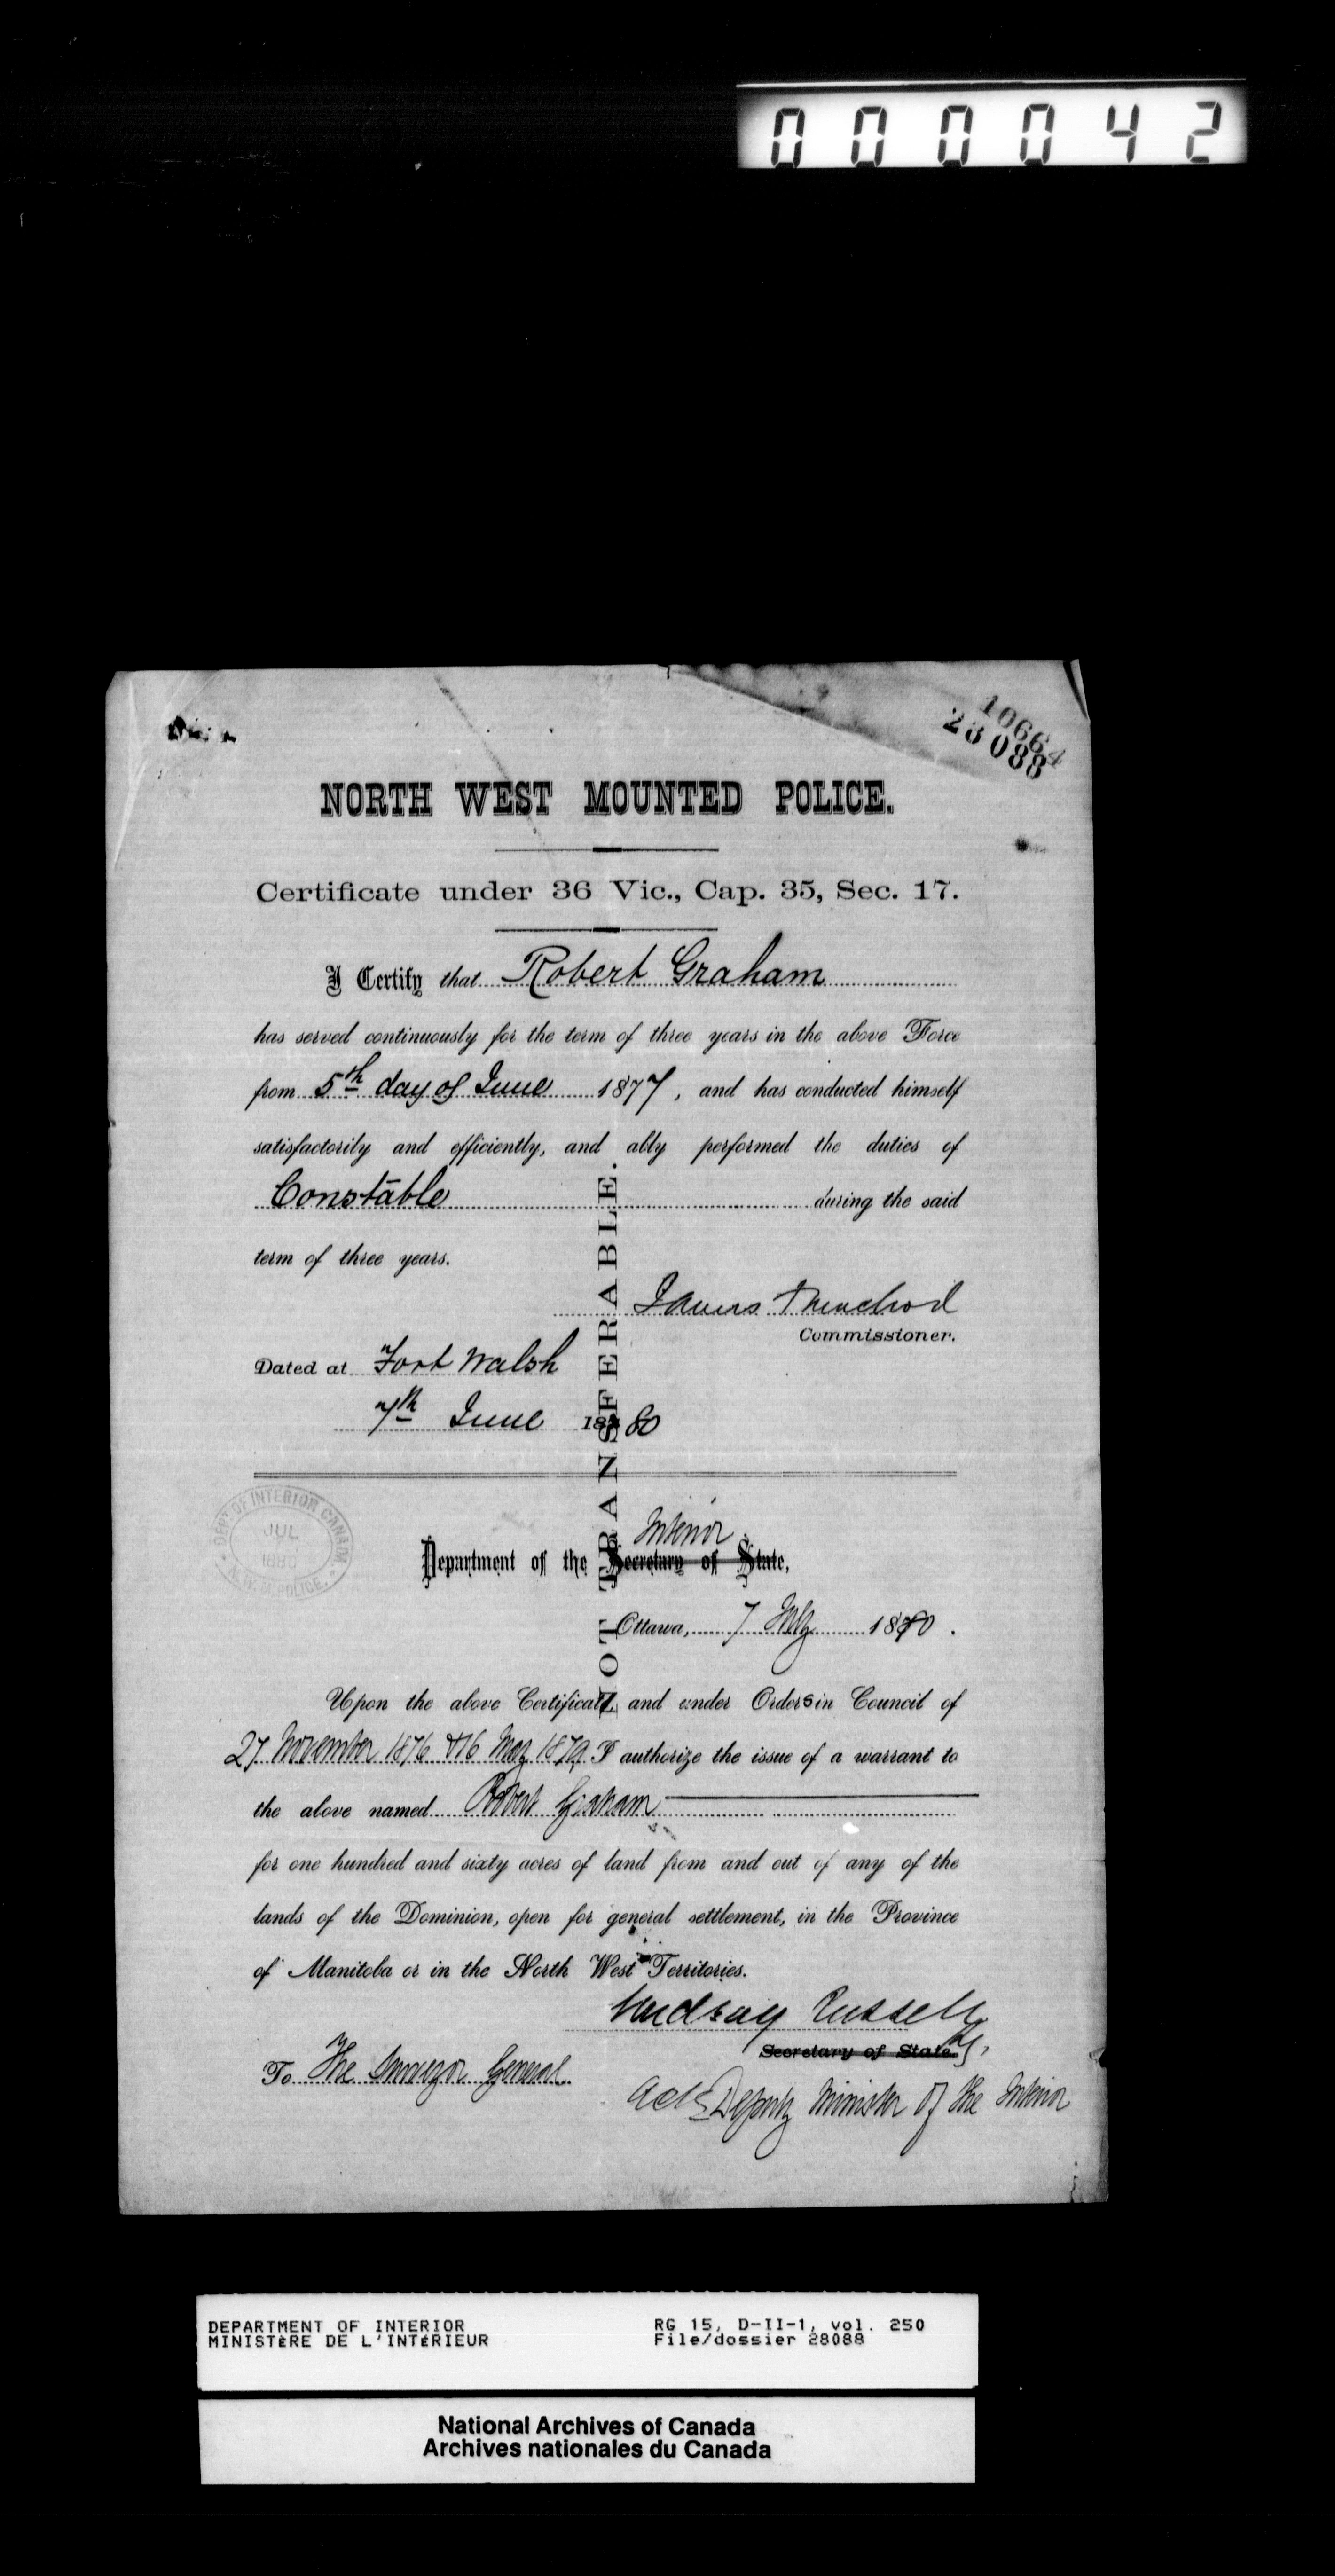 000042
10664
28088
NORTH WEST MOUNTED POLICE.
Certificate under 36 Vic., Cap. 35, Sec. 17.
I Certify that Robert Graham
has served continuously for the term of three years in the above Force
from 5th day of June 1877, and has conducted himself
satisfactorily and efficiently, and ably performed the duties of
Constable during the said
term of three years.
James Macleod
Commissioner.
Dated at Fort Walsh
7th June 1880
NOT TRANSFERABLE.
DEPT OF INTERIOR CANADA
JUL
1880
N.W.M. POLICE.
Interior
Department of the Secretary of State,
Ottawa, 7 July 1880.
Upon the above Certificate and under Orders in Council of
27 November 1876 & 16 May 1879 I authorize the issue of a warrant to
the above named Robert Graham
for one hundred and sixty acres of land from and out of any of the
lands of the Dominion, open for general settlement, in the Province
of Manitoba or in the North West Territories.
Lindsay Russell
Secretary of State
To The Surveyor General
Actg Deputy Minister of the Interior
DEPARTMENT OF INTERIOR
MINISTÈRE DE L'INTÉRIEUR
RG 15, D-II-1, vol. 250
File/dossier 28088
National Archives of Canada
Archives nationales du Canada